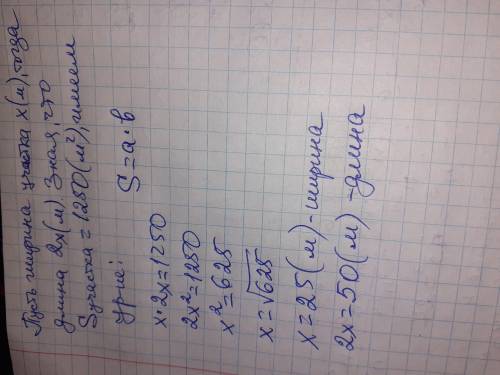 Пусть ширина участка x(м), тогда
длина 2x(м). Зная, что
Sучастка = 1250(м²), имеем
ур-ие: S=a·b
x·2x=1250
2x²=1250
x²=625
x=√625
x=25(м)-ширина
2x=50(м)-длина